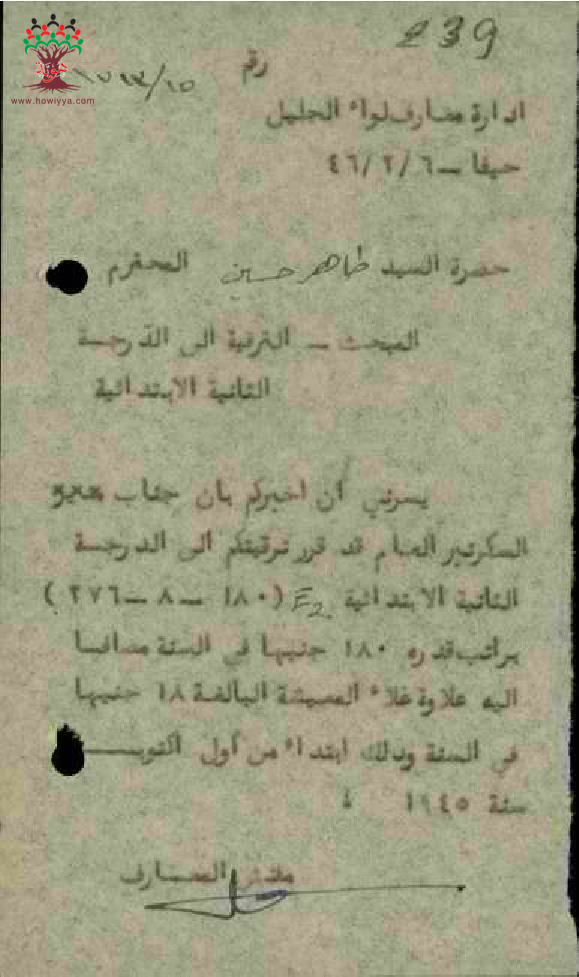 239
رقم
www.howiyya.com
ادارة معارف لواء الجليل
حيفا – ٤٦/٢/٦
حضرة السيد طاهر حسين المحترم
المبحث – الترقية الى الدرجة
الثانية الابتدائية
يسرني أن اخبركم بان جناب
السكرتير العام قد قرر ترقيتكم الى الدرجة
الثانية الابتدائية E2 (١٨٠ – ٨ – ٢٧٦)
براتب قدره ١٨٠ جنيها في السنة مضافا
اليه علاوة غلاء المعيشة البالغة ١٨ جنيها
في السنة وذلك ابتداء من أول
سنة ١٩٤٥
مفتش المعارف